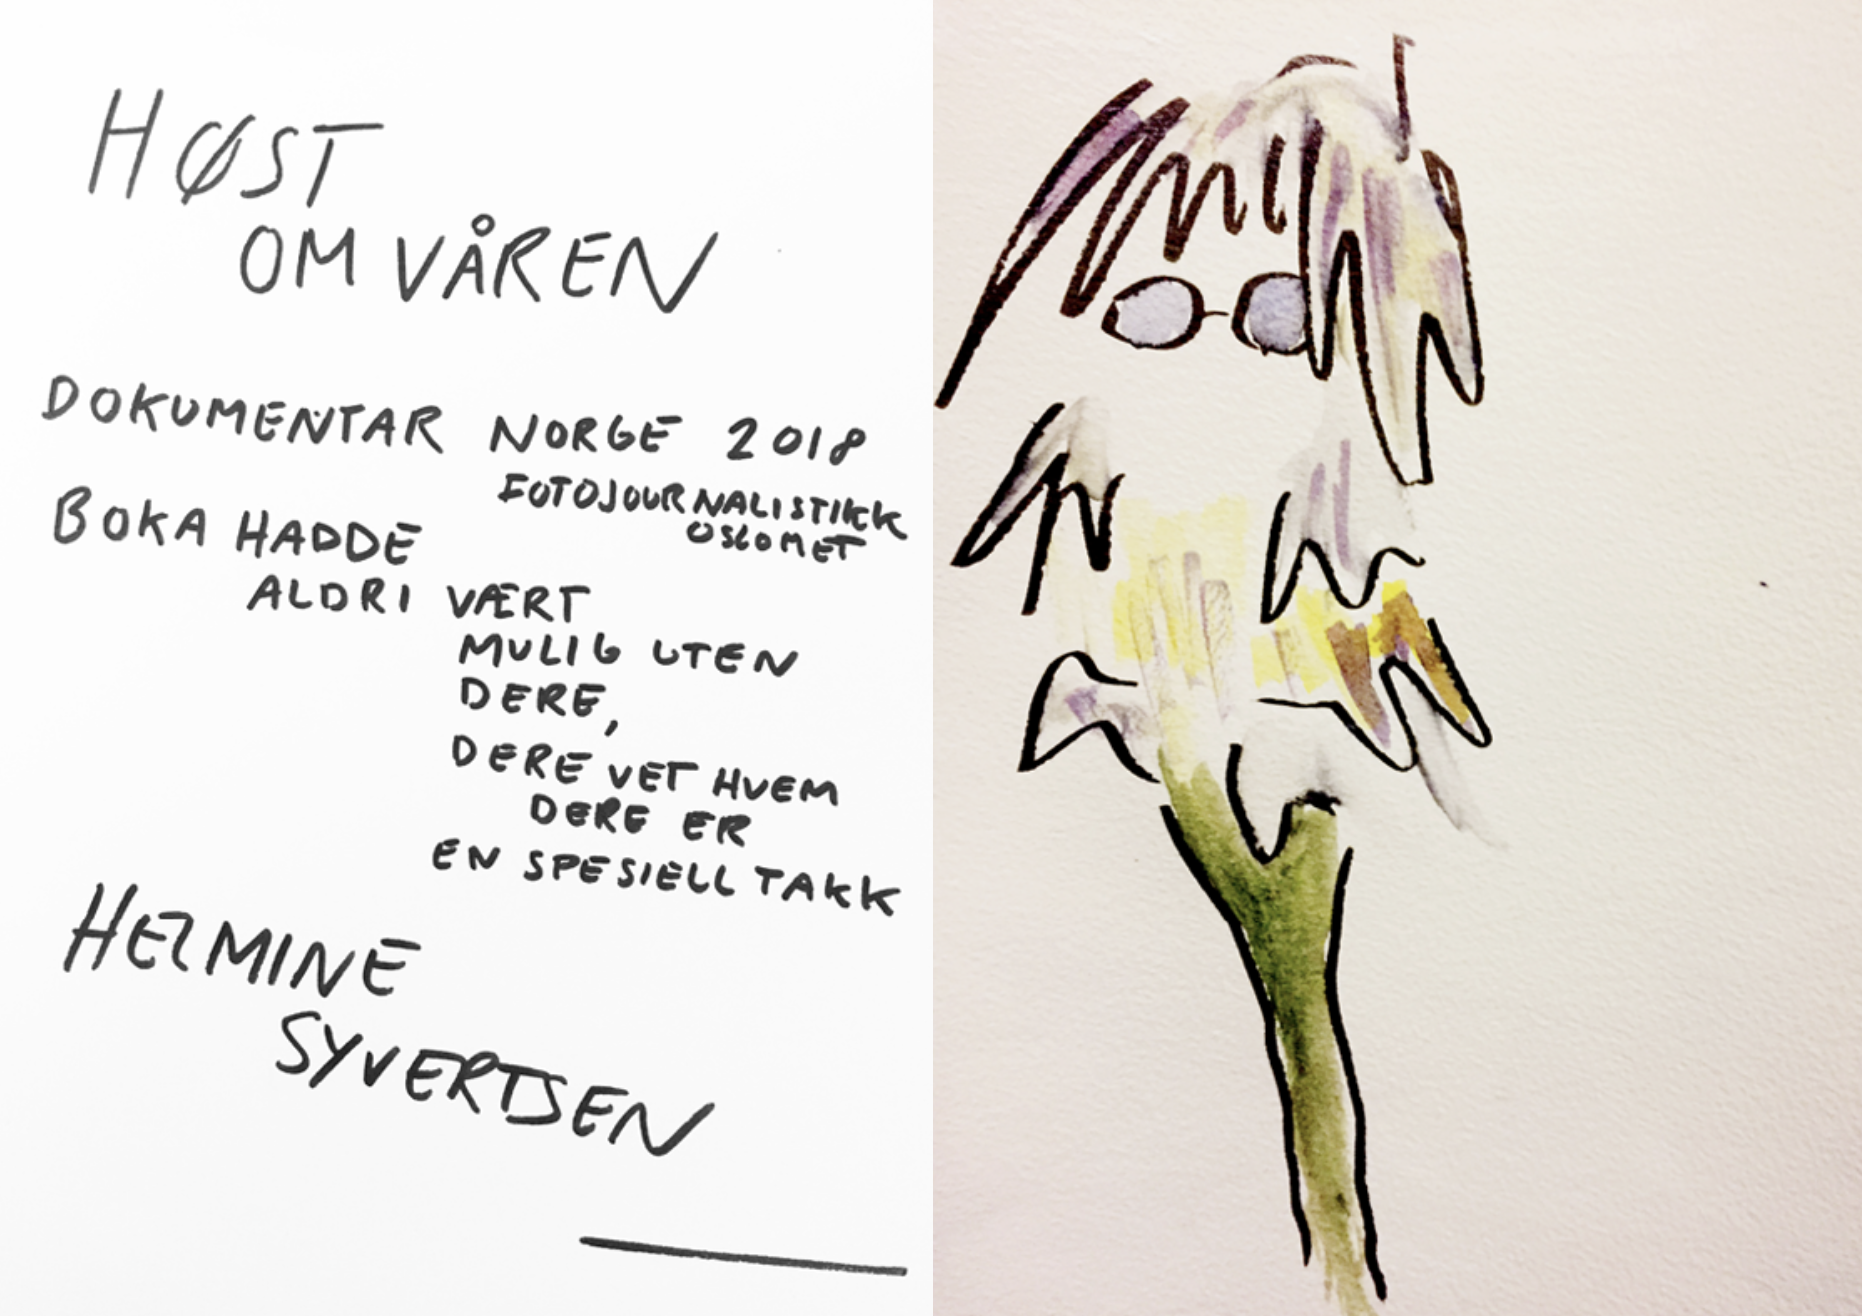 HØST
OM VÅREN
DOKUMENTAR NORGE 2018
FOTOJOURNALISTIKK
OSLOMET
BOKA HADDE
ALDRI VÆRT
MULIG UTEN
DERE,
DERE VET HVEM
DERE ER
EN SPESIELL TAKK
HERMINE
SYVERTSEN